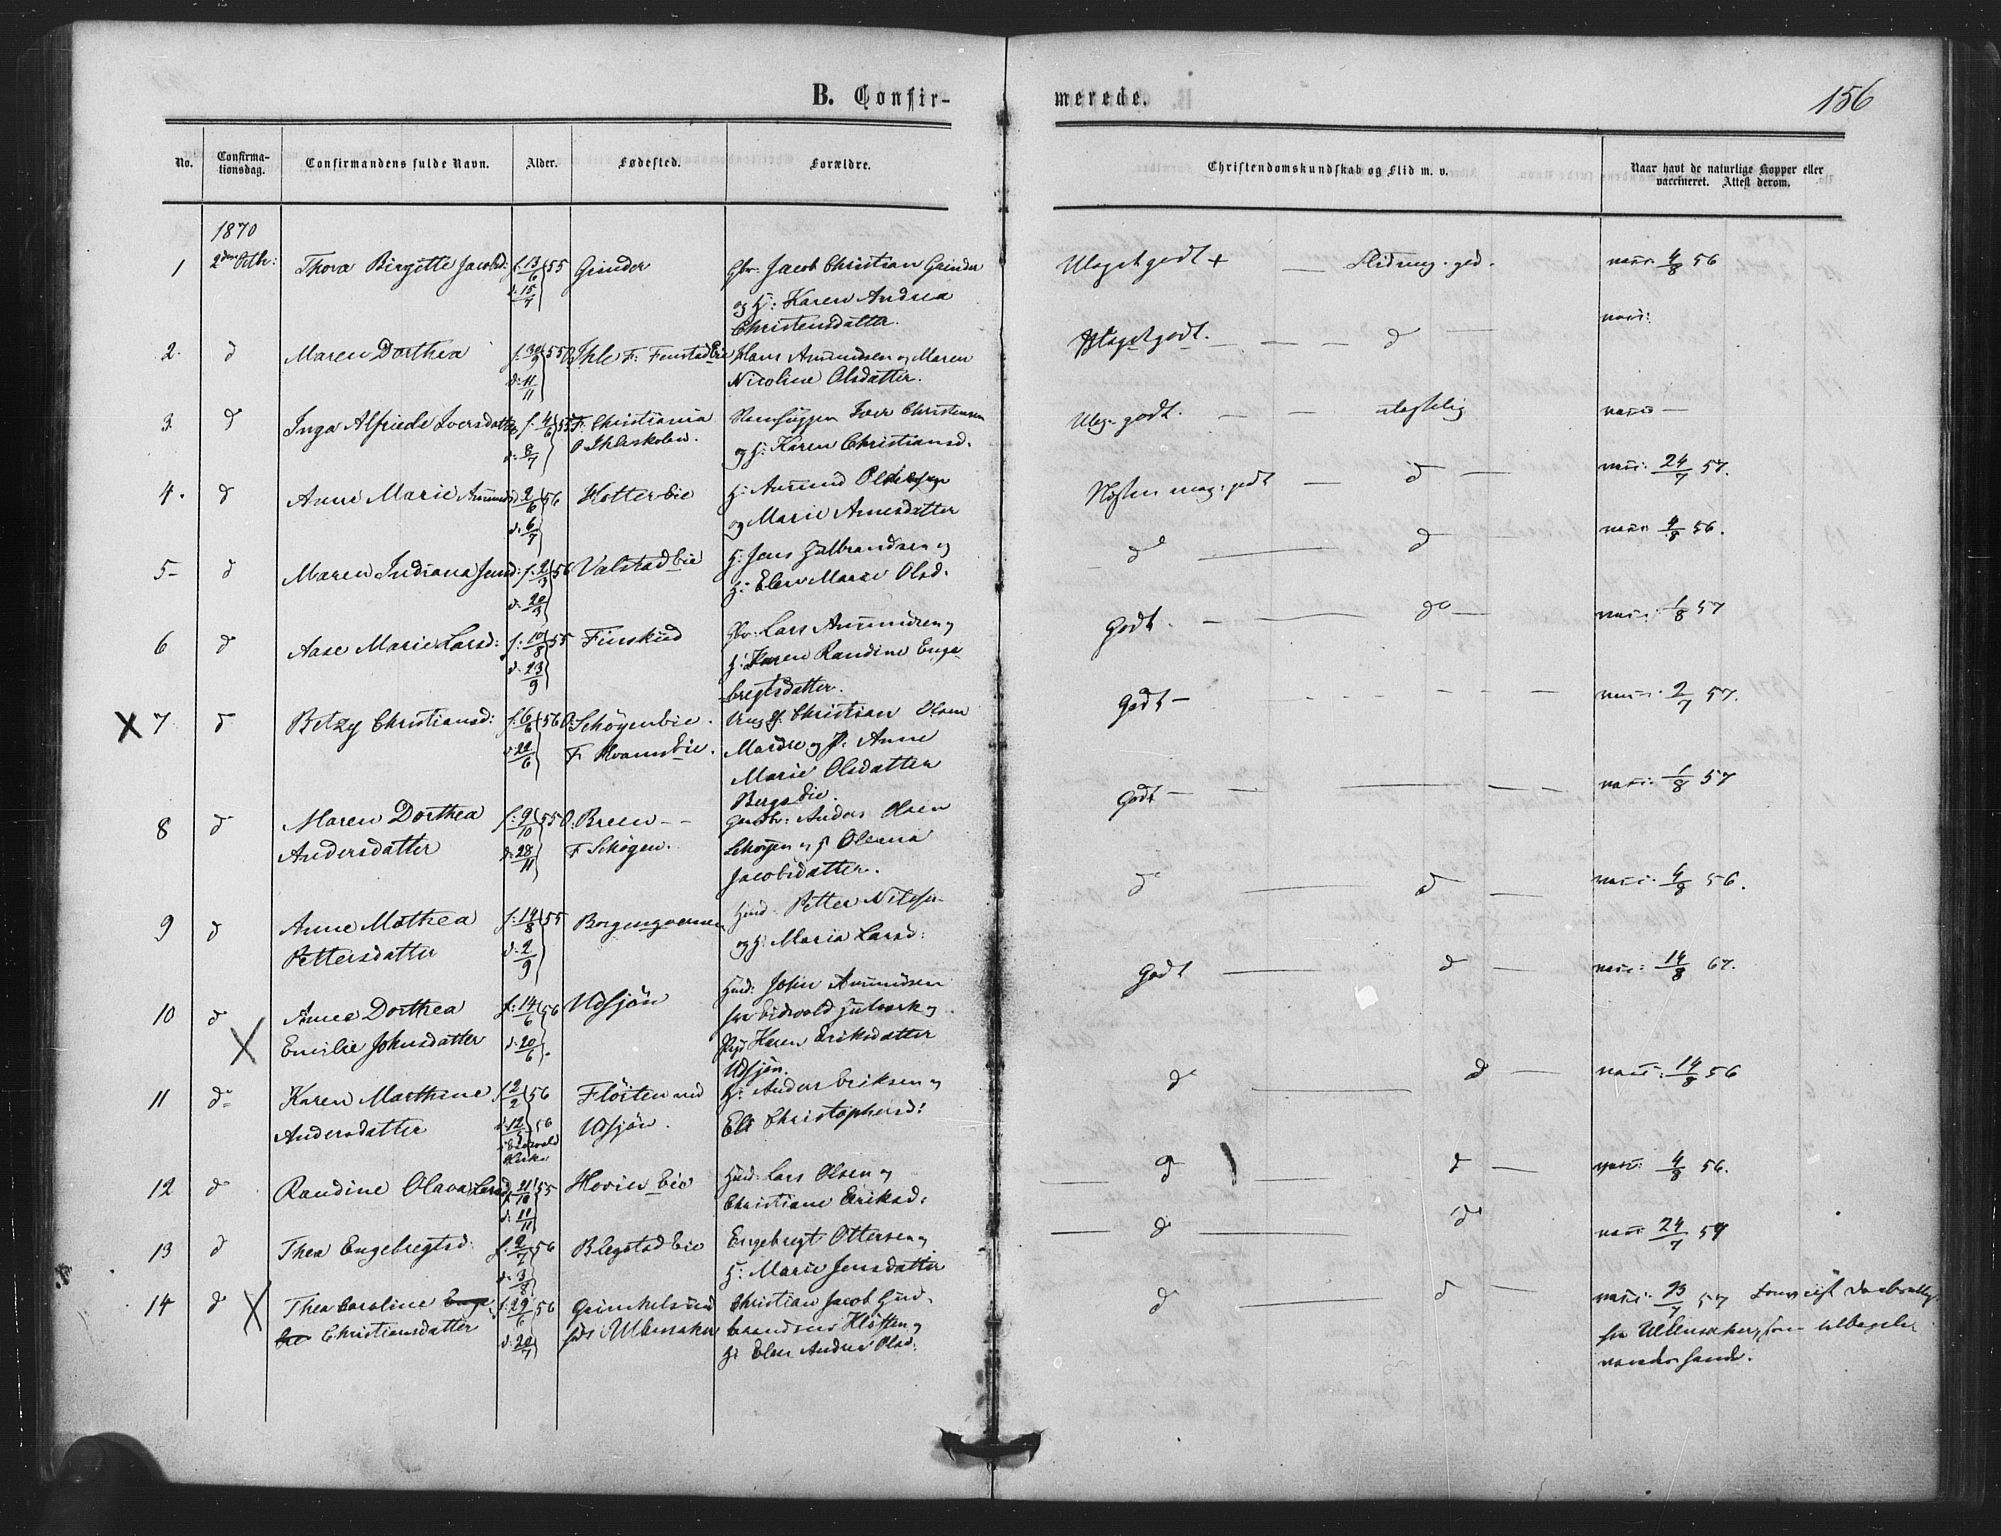 B. Confirmerede.
156
No.
Confirma-
tionsdag.
Confirmandens fulde Navn.
Alder.
Fødested.
Forældre.
Christendomskundskab og Flid m. v.
Naar havt de naturlige Kopper eller
vaccineret. Attest derom.
1870
1 2den Octbr: Thora Birgitte Jacobsd: f. 13/6 55 Grinder Gbr: Jacob Christian Grinder
d. 15/7 og H: Karen Andrea
Christensdatter.
Meget godt + — Flid meg. god. vacc. 4/8 56
2. d Maren Dorthea f. 30/9 55 O Ihle F: Fenstad Eie Hans Amundsen og Maren
d: 11/11 Nicoline Olsdatter.
Meget godt. — — d — vacc:
3 d Inga Alfride Iversdatter f. 4/6 55 F. Christiania Iver Christensen
d: 8/7 O Ihleskolen. og H: Karen Christiansd.
Meg. godt. — — vacc —
4. d Anne Marie Amunds 2/6 56 Hotter Eie H: Amund
d: 6/7 og Marie Arnesdatter
Næsten meg: godt — d — vacc: 24/7 57.
5- d Maren Indiana Jensd: f. 2/3 56 Valstad Eie H: Jens Gulbrandsen og
d: 20/3 H: Elen Marie Olsd.
— d — d — vacc 4/8 56.
6 d Aase Marie Larsd: f: 10/8 55 Finskud Gbr: Lars Amundsen og
d: 23/9 H: Karen Randine Enge-
bregtsdatter.
Godt. — do — vacc: 1/8 57
X 7. d Betzy Christiansd: f. 6/6 56 O. Schøyen Eie. Ung K. Christian Olsen
d: 22/6 F Kvams Eie. og P: Anne
Marie Olsdatter
Bergs Eie.
Godt — vacc: 2/7 57.
8 d Maren Dorthea f: 9/10 55 O: Breen — — Gaardbr: Anders Olsen
Andersdatter d: 28/11 F Schøgen. Schøyen og H Oleana
Jacobsdatter.
Godt — vacc: 1/8 57
9 d Anne Mathea f: 14/8 55 Borgengaarden Hmd. Petter Nilsen
Pettersdatter d: 2/9 og H: Maria Larsd:
d — d — vacc: 4/8 56.
10 d Anne Dorthea f: 14/6 56 Udsjøn Hmd: John Amundsen
X Emilie Johnsdatter d: 20/6. fra Eidsvold og
Karen Eriksdatter
Udsjøn.
Godt — d — vacc: 14/8 67.
11 d Karen Marthine f 2/2 56 Fløiten ved H: Anders Eriksen og
Andersdatter d: 12/5 56 Udsjøn. Eli Christophersd:
i Eidsvold
Kirke
d — d — vacc: 14/8 56
12 d Randine Olava Larsd 21/10 55 Hovin Eie Hmd: Lars Olsen og
d: 11/11 Christiane Eriksd:
d — d — vacc: 4/8 56.
13 d Thea Engebregtsd. f. 2/7 56 Blegstad Eie Engebregt Ottersen og
d. 3/8 H: Marie Jensdatter
— d — d vacc 24/7 57
14 d X Thea Caroline f: 29/6 56 Grinkelsrud Christian Jacob Gud-
Christiansdatter d: 20/7 i Ullensaker brandsen Kløften og
H: Elen Andrea Olsd:
d — d — vacc: 23/7 57
fra Ullensaker, som tilbage